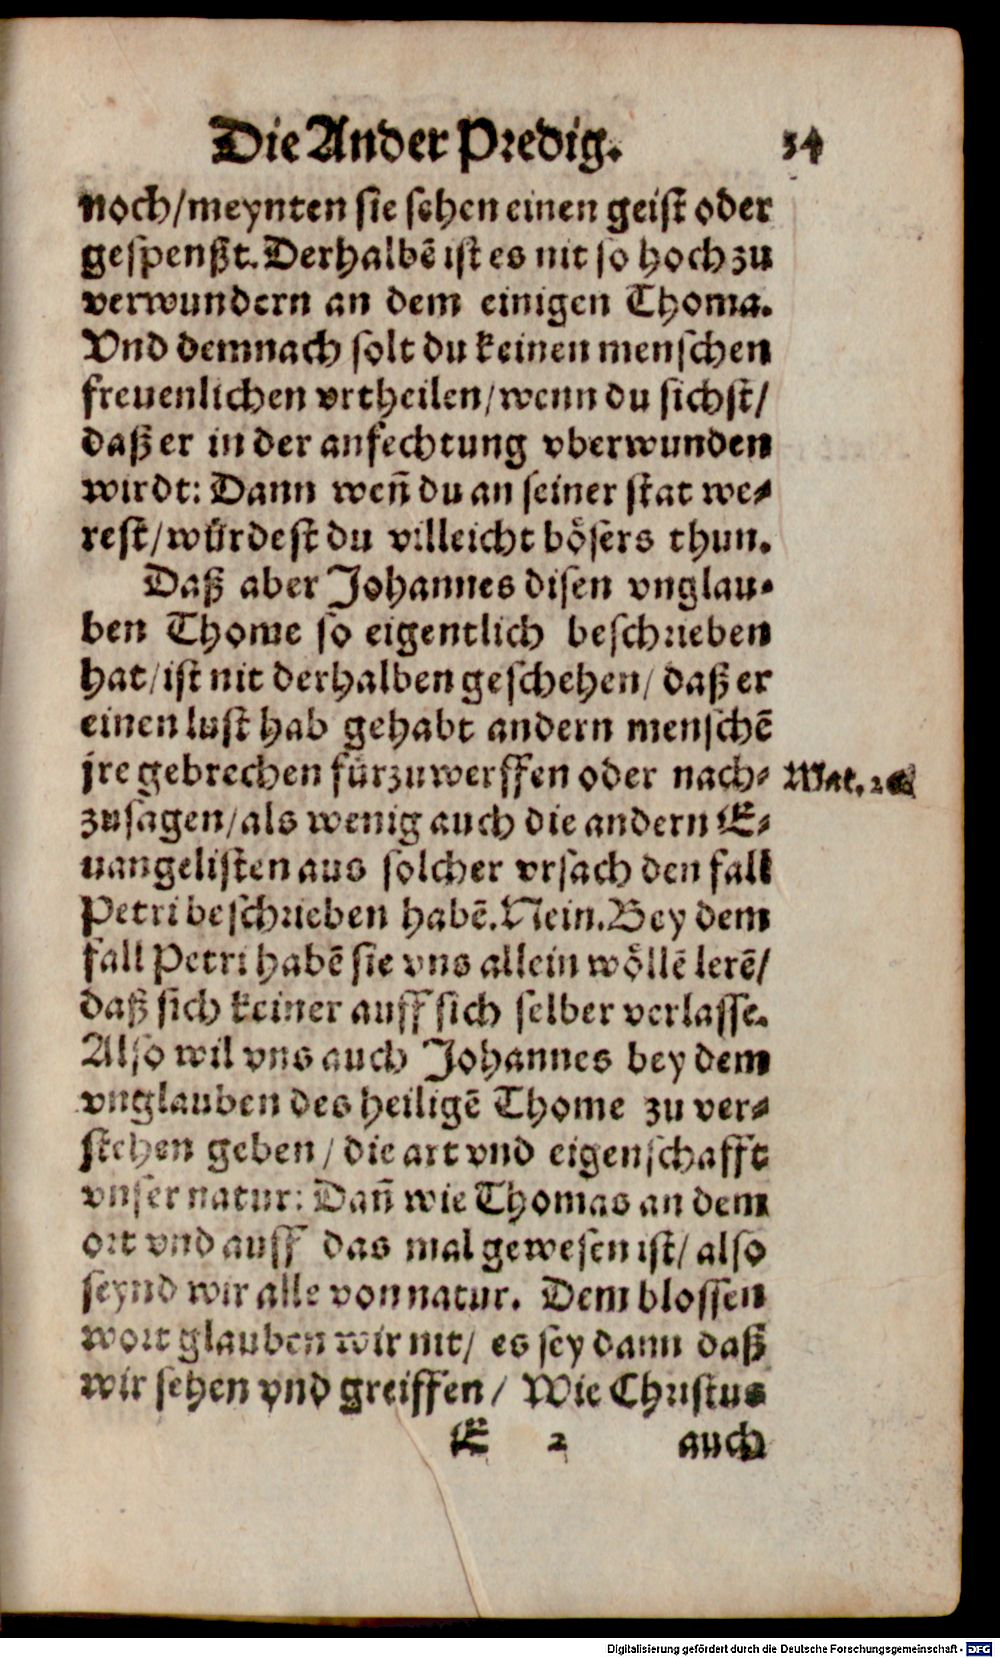 Die Ander Predig. 34
noch/meynten sie sehen einen geist oder
gespenßt. Derhalbē ist es nit so hoch zu
verwundern an dem einigen Thoma.
Vnd demnach solt du keinen menschen
freuenlichen vrtheilen/wenn du sichst/
daß er in der anfechtung vberwunden
wirdt: Dann weñ du an seiner stat we⸗
rest/würdest du villeicht bösers thun.
Daß aber Johannes disen vnglau⸗
ben Thome so eigentlich beschrieben
hat/ist nit derhalben geschehen/daß er
einen lust hab gehabt andern menschē
jre gebrechen fürzuwerffen oder nach⸗
Mat. 26
zusagen/als wenig auch die andern E⸗
uangelisten aus solcher vrsach den fall
Petri beschrieben habē. Nein. Bey dem
fall Petri habē sie vns allein wöllē lerē/
daß sich keiner auff sich selber verlasse.
Also wil vns auch Johannes bey dem
vnglauben des heiligē Thome zu ver⸗
stehen geben/die art vnd eigenschafft
vnser natur: Dañ wie Thomas an dem
ort vnd auff das mal gewesen ist/also
seynd wir alle von natur. Dem blossen
wort glauben wir nit/ es sey dann daß
wir sehen vnd greiffen/ Wie Christus
E 2 auch
Digitalisierung gefördert durch die Deutsche Forschungsgemeinschaft - DFG